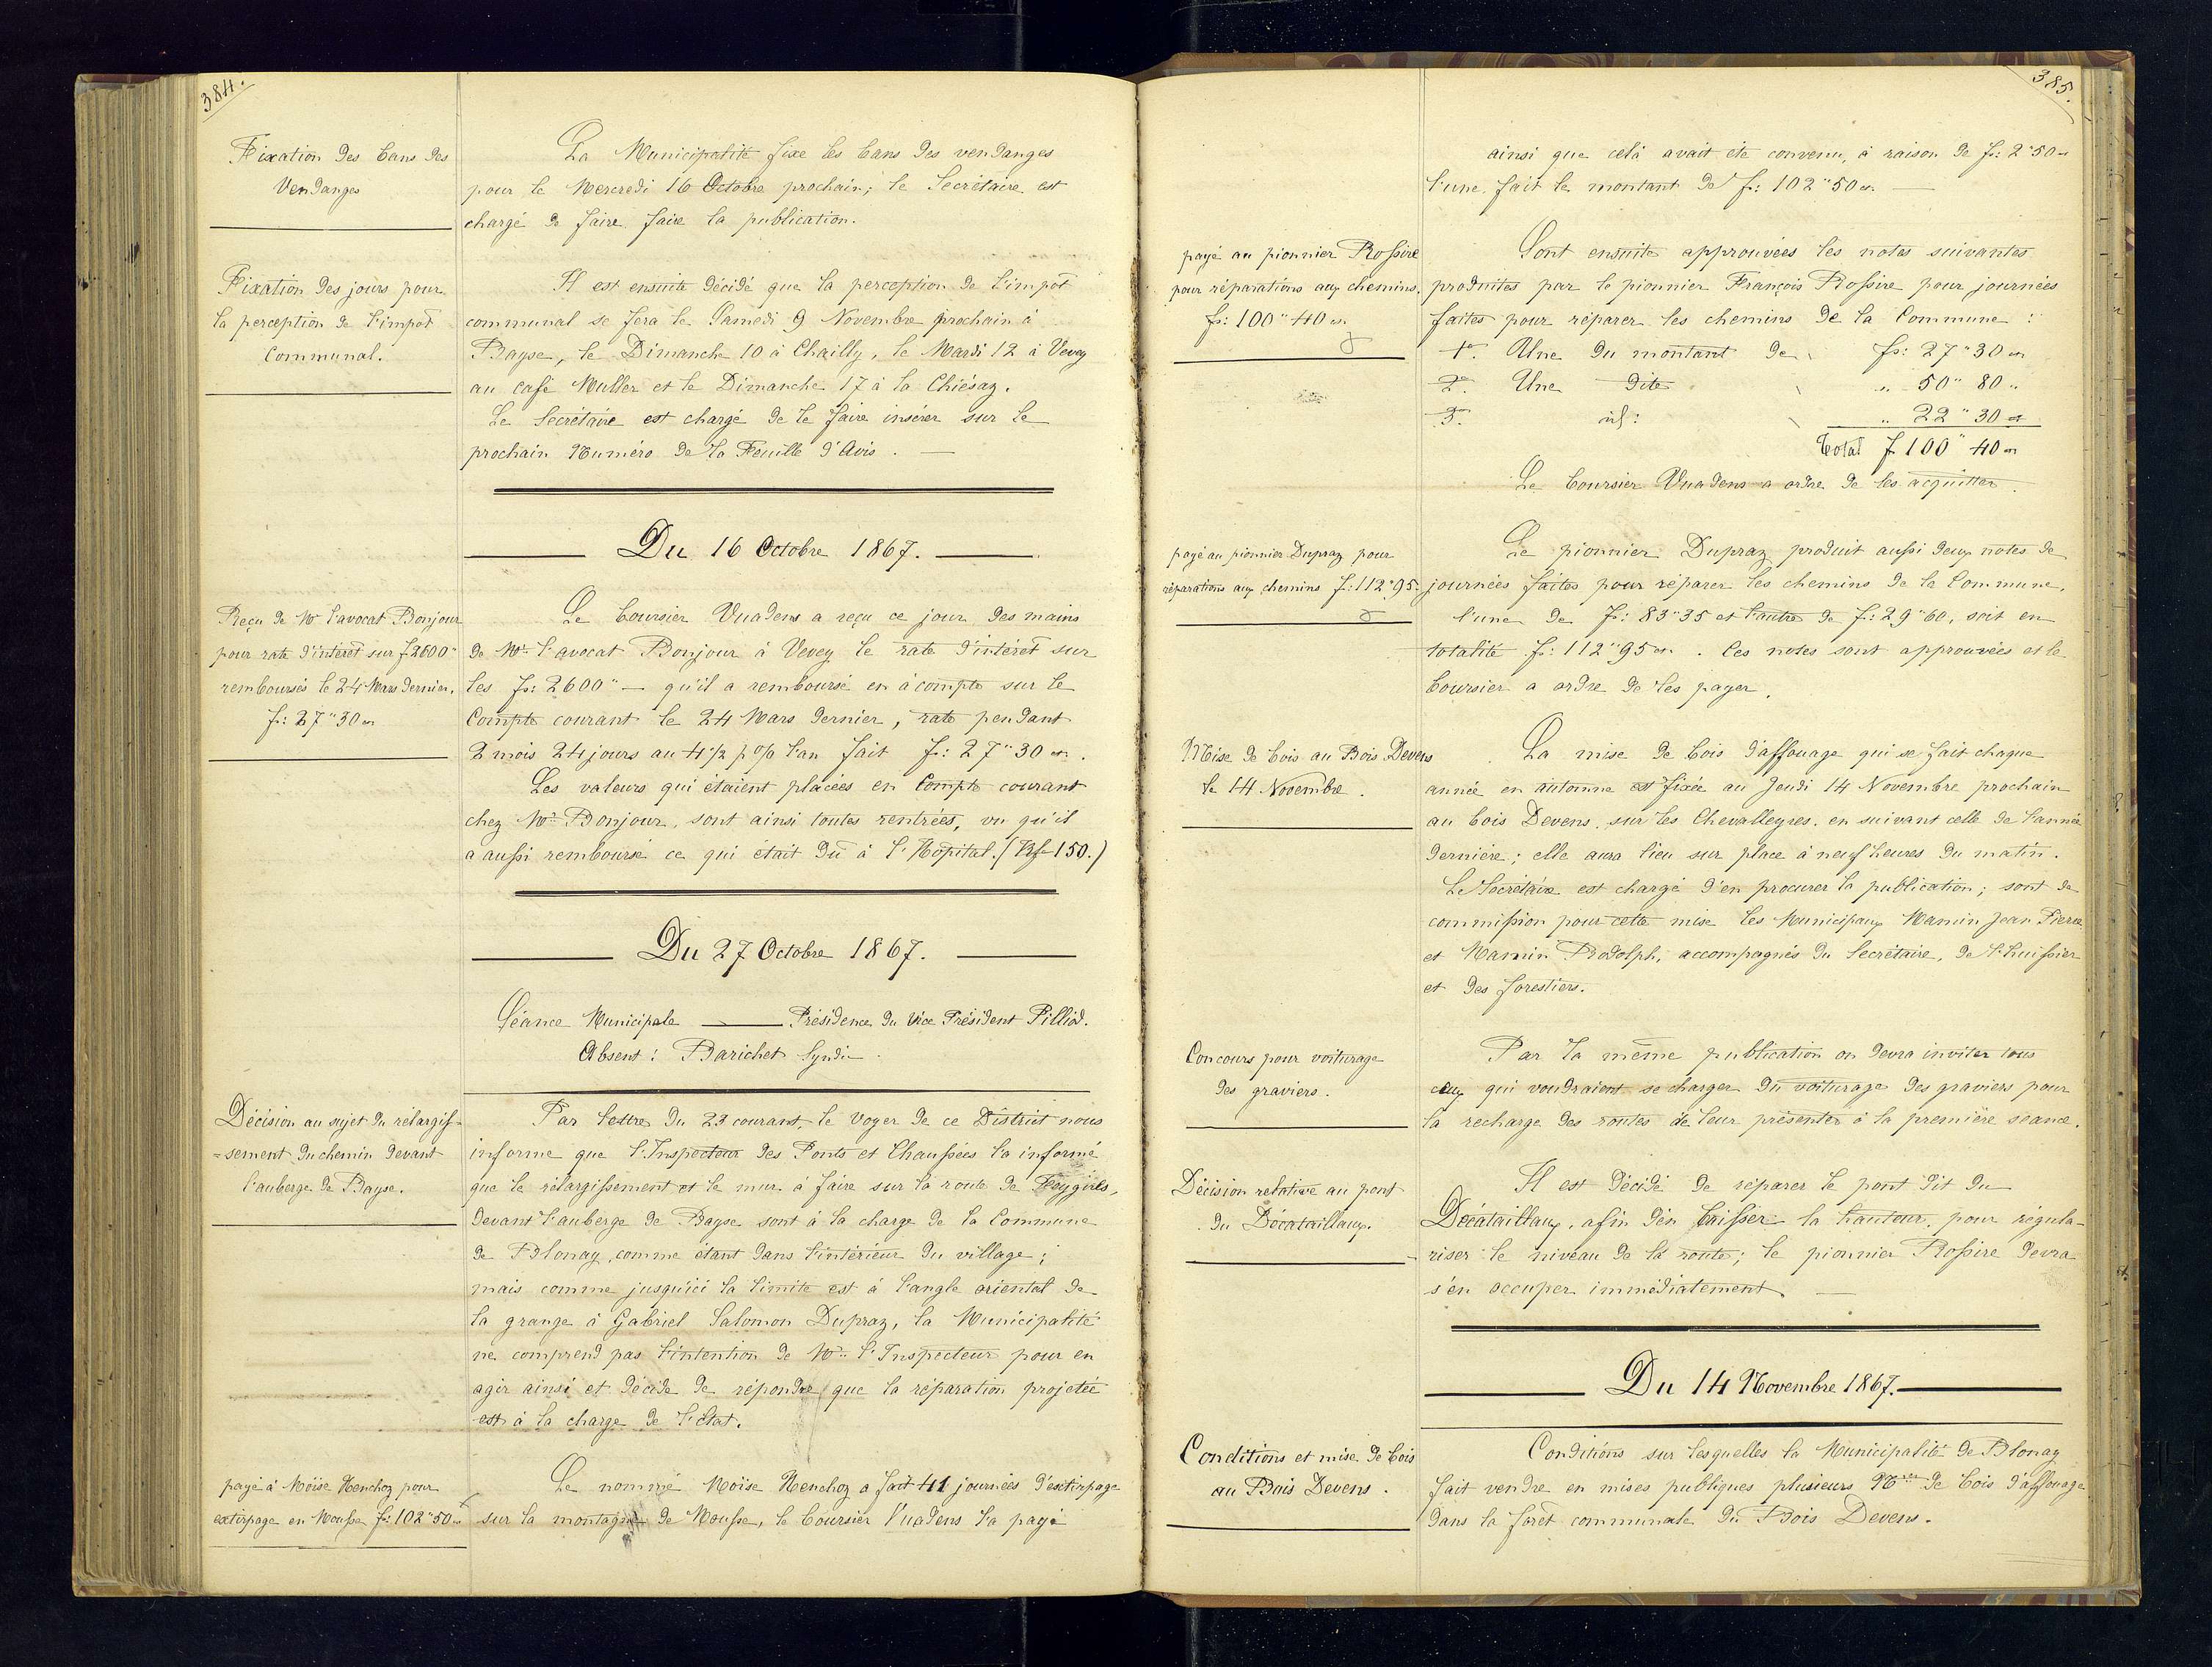 384.
Fixation des bans des
Vendanges
La Municipalité fixe les bans des vendanges
pour le Mercredi 16 Octobre prochain; le Secrétaire est
chargé de faire faire la publication.
Fixation des jours pour
la perception de l'impôt
Communal.
Il est ensuite décidé que la perception de l'impôt
communal se fera le Samedi 9 Novembre prochain à
Bayse, le Dimanche 10 à Chailly, le Mardi 12 à Vevey
au café Muller et le Dimanche 17 à la Chiésaz.
Le Secrétaire est chargé de le faire insérer sur le
prochain Numéro de la Feuille d'Avis.
Du 16 Octobre 1867.
Reçu de Mr l'avocat Bonjour
pour rate d'intérêt sur f 2600"
remboursés le 24 Mars dernier,
fr: 27"30 cs
Le boursier Vuadens a reçu ce jour des mains
de Mr l'avocat Bonjour à Vevey le rate d'intérêt sur
les fr: 2600" — qu'il a remboursé en àcompte sur le
Compte courant le 24 Mars dernier, rate pendant
2 mois 24 jours au 4 1/2 p % l'an fait fr: 27"30 cs.
Les valeurs qui étaient placées en Compte courant
chez Mr Bonjour, sont ainsi toutes rentrées, vu qu'il
a aussi remboursé ce qui était dû à l'Hôpital. ( 150.)
Du 27 Octobre 1867.
Séance Municipale — Présidence du Vice Président Pilliod.
Absent: Barichet Syndic
Décision au sujet du rélargis-
=sement du chemin devant
l'auberge de Bayse.
Par lettre du 23 courant, le Voyer de ce District nous
informe que l'Inspecteur des Ponts et Chaussées l'a informé
que le rélargissement et le mur à faire sur la route de Feygires,
devant l'auberge de Bayse sont à la charge de la Commune
de Blonay, comme étant dans l'intérieur du village;
mais comme jusqu'ici la limite est à l'angle oriental de
la grange à Gabriel Salomon Dupraz, la Municipalité
ne comprend pas l'intention de Mr l'Inspecteur pour en
agir ainsi et décide de répondre que la réparation projetée
est à la charge de l'état.
payé à Moïse Henchoz pour
extirpage en Mousse fr: 102"50 cs
Le nommé Moïse Henchoz a fait 41 journées d'extirpage
sur la montagne de Mousse, le boursier Vuadens l'a payé
385.
ainsi que celà avait été convenu, à raison de fr: 2"50 cs
l'une, fait le montant de fr: 102"50 cs. —
payé au pionnier Rossire
pour réparations aux chemins.
fr: 100"40 cs.
Sont ensuite approuvées les notes suivantes
produites par le pionnier François Rossire pour journées
faites pour réparer les chemins de la Commune:
1o. Une du montant de fr: 27"30 cs
2o. Une dite " 50"80 "
3o. id: " 22"30 cs
Total f 100"40 cs
Le boursier Vuadens a ordre de les acquitter.
payé au pionnier Dupraz pour
réparations aux chemins f: 112"95
Le pionnier Dupraz produit aussi deux notes de
journées faites pour réparer les chemins de la Commune,
l'une de fr: 83"35 et l'autre de f: 29"60, soit en
totalité fr: 112"95 cs. Ces notes sont approuvées et le
boursier a ordre de les payer.
Mise de bois au Bois Devens
le 14 Novembre.
La mise de bois d'affouage qui se fait chaque
année en automne est fixée au Jeudi 14 Novembre prochain
au bois Devens, sur les Chevalleyres, en suivant celle de l'année
dernière; elle aura lieu sur place à neuf heures du matin.
Le Secrétaire est chargé d'en procurer la publication; sont de
commission pour cette mise les Municipaux Mamin Jean Pierre
et Mamin Rodolph, accompagnés du Secrétaire, de l'huissier
et des forestiers.
Concours pour voiturage
des graviers.
Par la même publication on devra inviter tous
ceux qui voudraient se charger du voiturage des graviers pour
la recharge des routes de leur présenter à la première séance.
Décision relative au pont
du Décataillaux.
Il est décidé de réparer le pont dit du
Décataillaux, afin d'en baisser la hauteur, pour régula-
=riser le niveau de la route; le pionnier Rossire devra
s'en occuper immédiatement. —
Du 14 Novembre 1867.
Conditions et mise de bois
au Bois Devens.
Conditions sur lesquelles la Municipalité de Blonay
fait vendre en mises publiques plusieurs Nos de bois d'affouage
dans la forêt communale du Bois Devens.